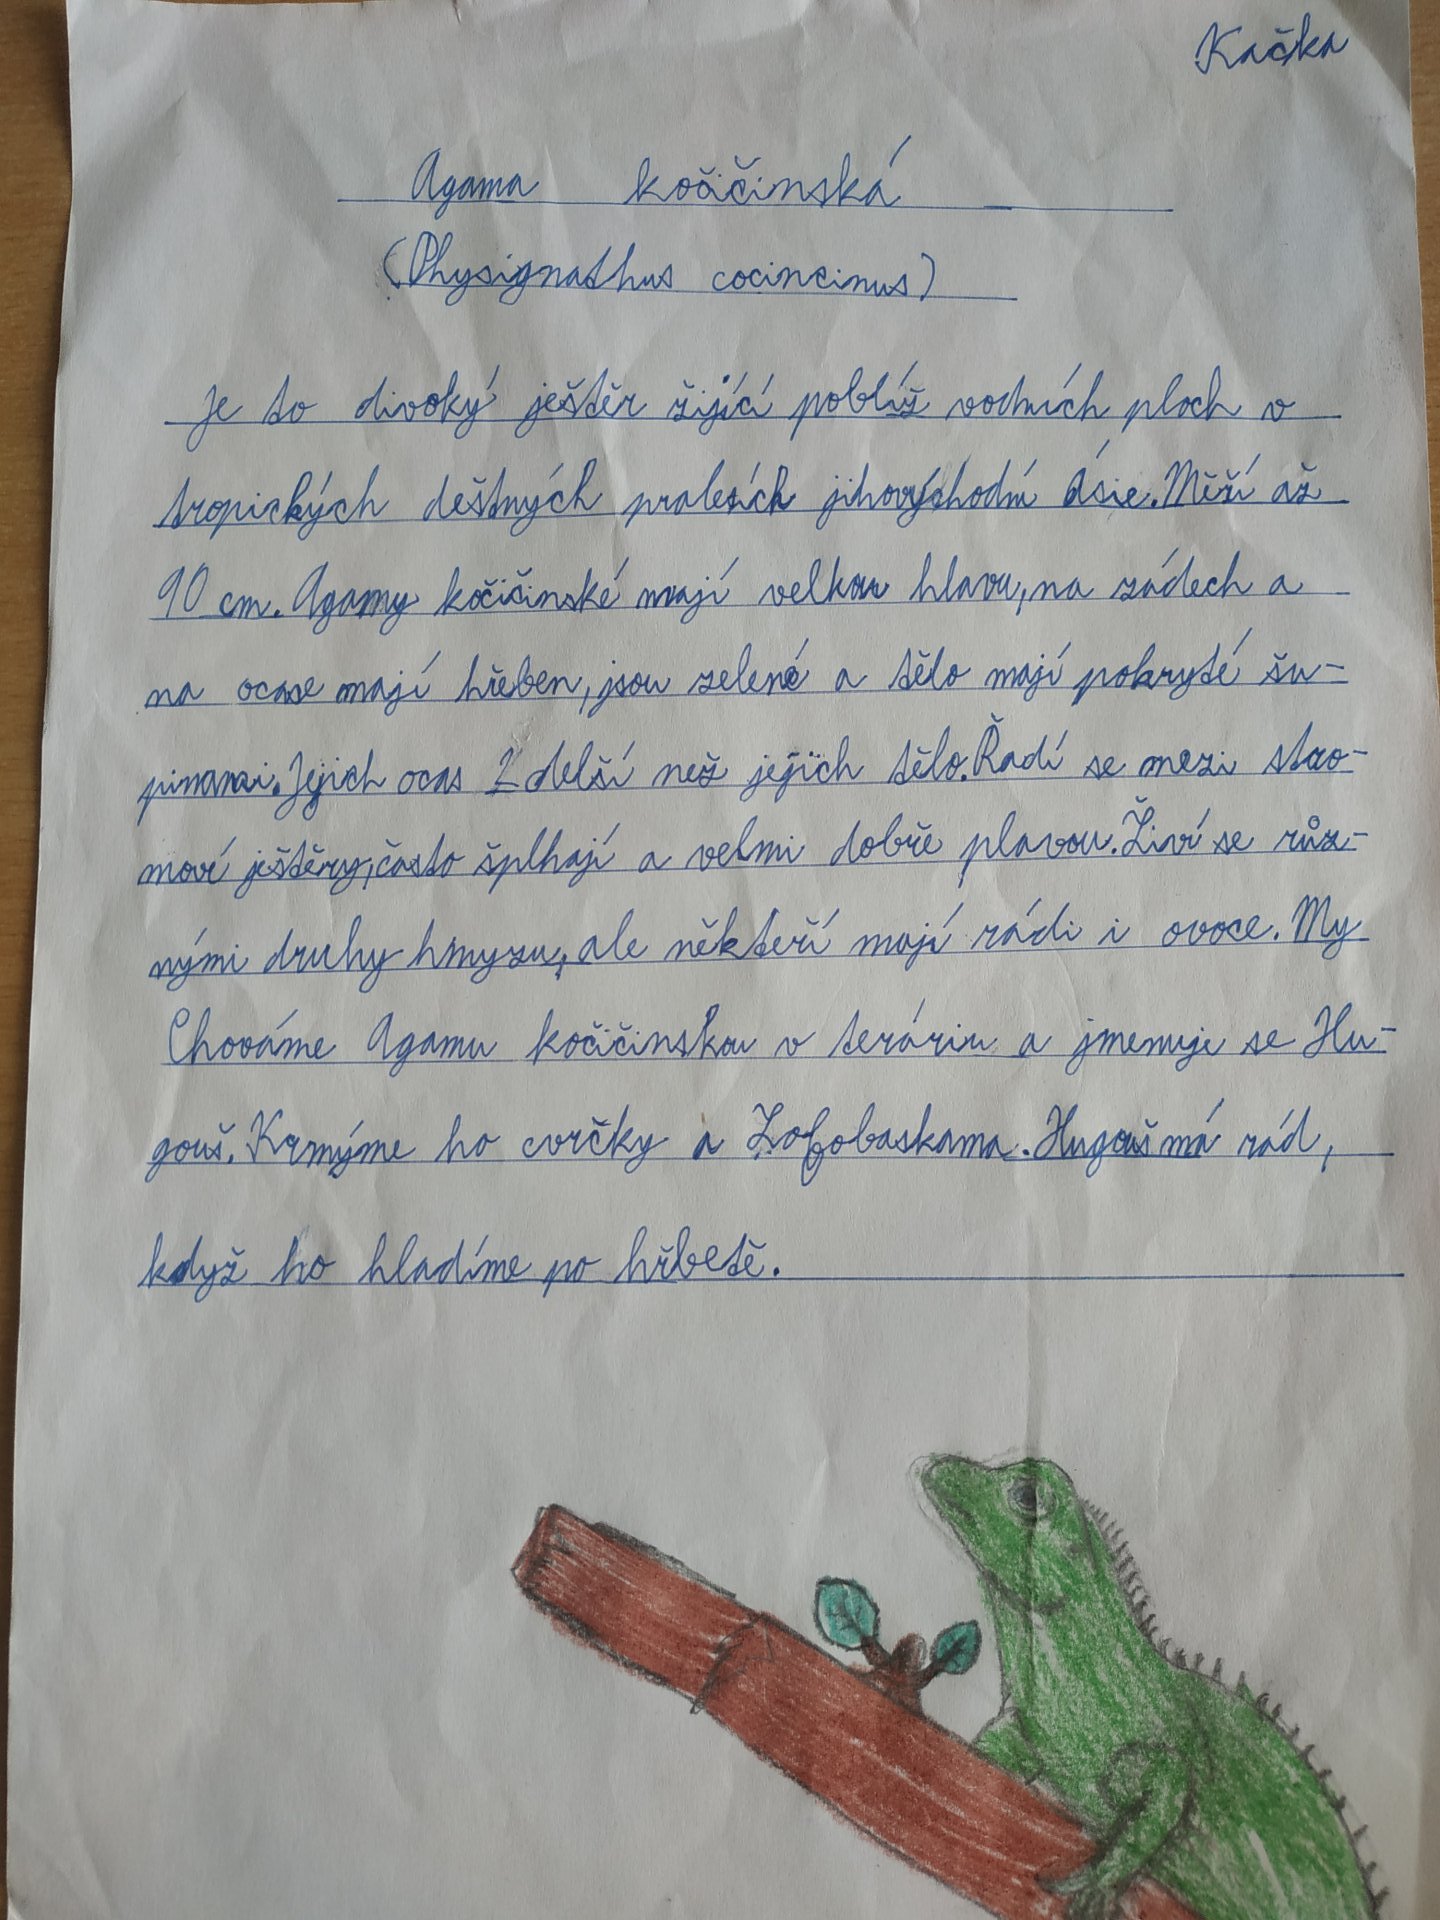 Kačka
Agama kočičinská
(Physignathus cocincinus)
Je to divoký ještěr žijící poblíž vodních ploch v
tropických deštných pralesích jihovýchodní Ásie. Měří až
90 cm. Agamy kočičinské mají velkou hlavu, na zádech a
na ocase mají hřeben, jsou zelené a tělo mají pokryté šu-
pinami. Jejich ocas 2 delší než jejich tělo. Řadí se mezi stro-
mové ještěry, často šplhají a velmi dobře plavou. Živí se růz-
nými druhy hmyzu, ale někteří mají rádi i ovoce. My
Chováme Agamu kočičinskou v teráriu a jmenuje se Hu-
gouš. Krmýme ho cvrčky a Zofobaskama. Hugouš má rád,
když ho hladíme po hřbetě.